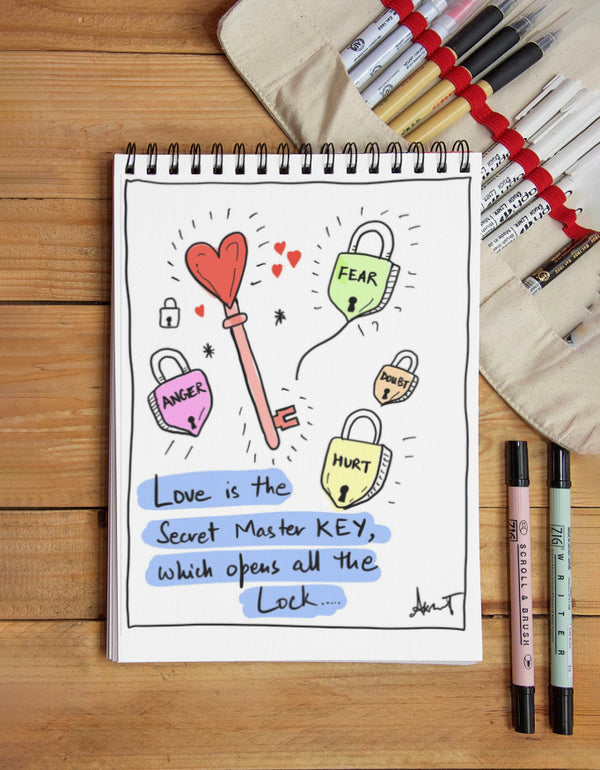 FEAR
DOUBT
ANGER
HURT
Love is the
Secret Master KEY,
which opens all the
Lock.....
ZIG SCROLL & BRUSH
ZIG WRITER